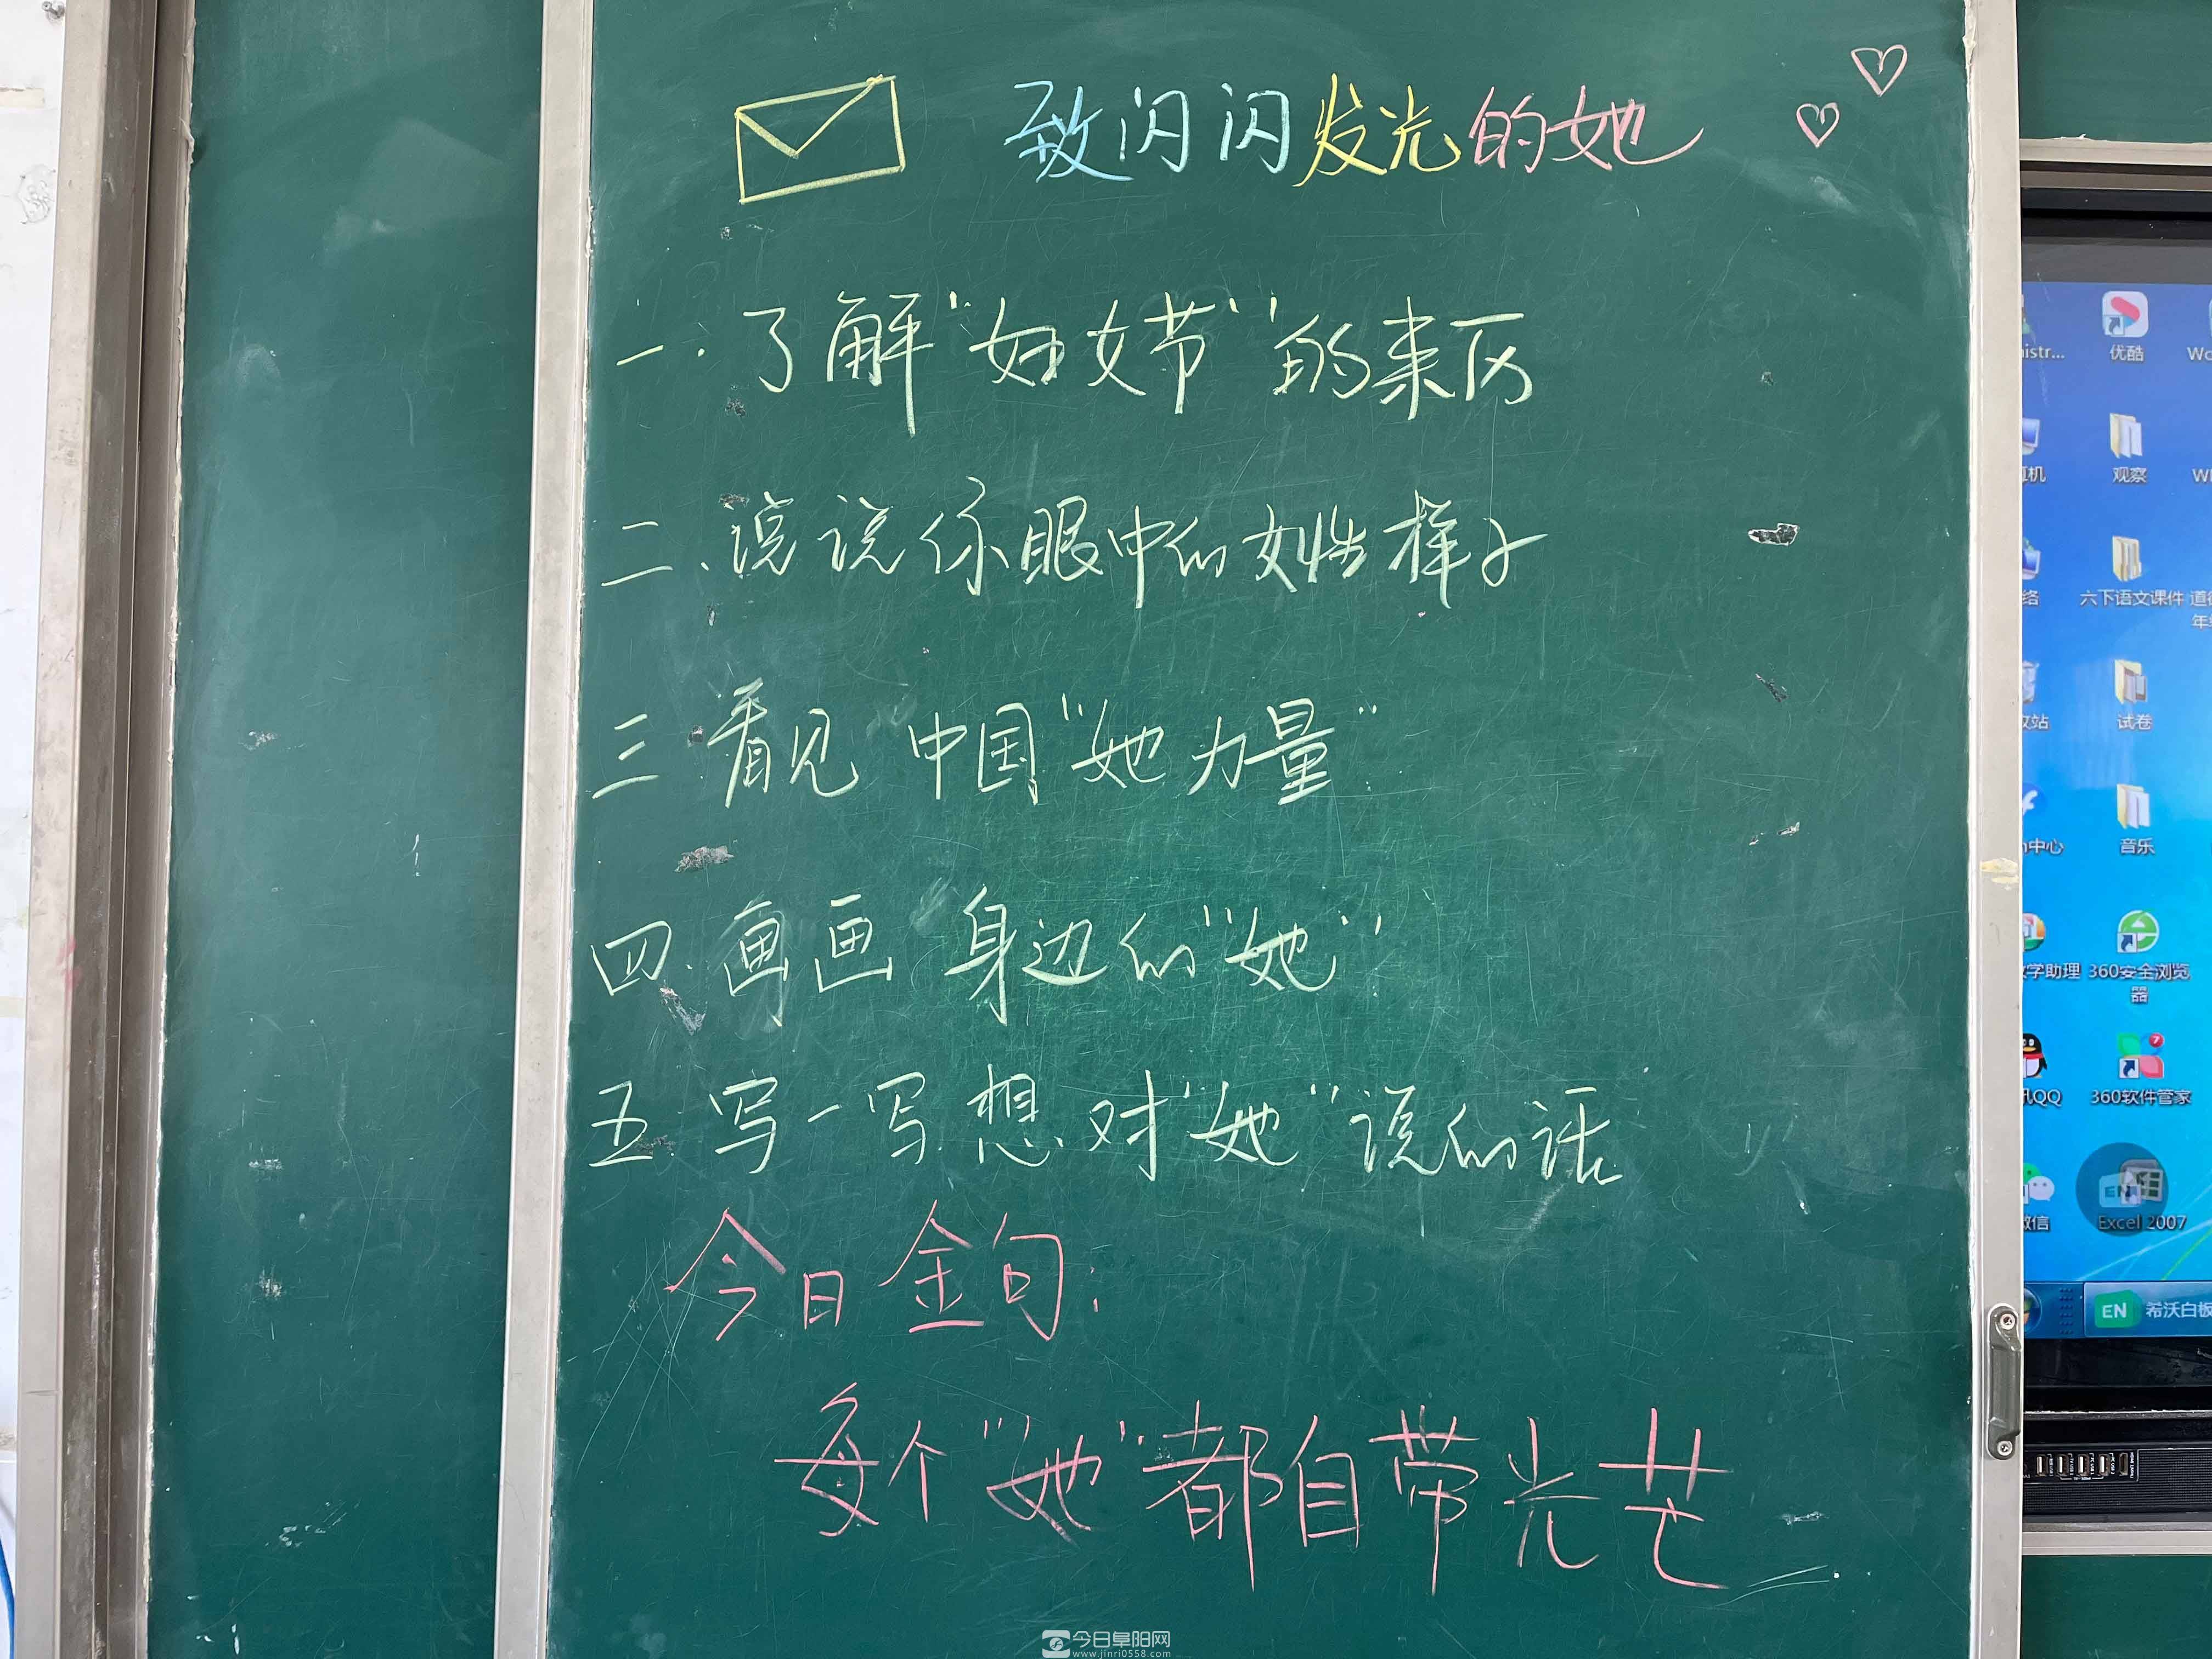 致闪闪发光的她
一.了解“妇女节”的来历
二.说说你眼中的女性样子
三.看见中国“她力量”
四.画画身边的“她”
五.写一写想对“她”说的话
今日金句:
每个“她”都自带光芒
istr...
优酷
观察
络
六下语文课件
试卷
中心
音乐
学助理
360安全浏览器
QQ
360软件管家
微信
Excel 2007
EN
EN 希沃白板
今日阜阳网
www.jinri0558.com